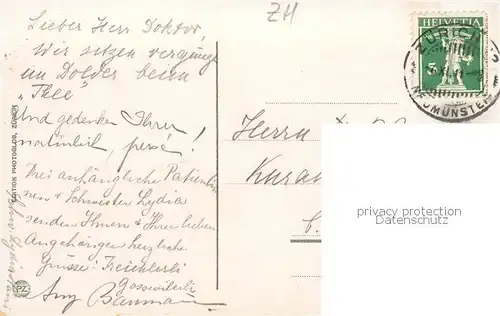 Lieber Herr Doktor,
Wir sitzen vergnügt
im Dolder beim
"Thee"
Und gedenken Ihrer
natürlich, persé!
Drei anhängliche Patientin
nen & Schwester Lydia
senden Ihnen & Ihren lieben
Angehörigen herzliche
Grüsse: Treichlerli
Gossweilerli
Amy Baumann
ZH
HELVETIA
5
ZÜRICH
NEUMÜNSTER
Herrn D
Kura
privacy protection
Datenschutz
EDITION PHOTOGLOB, ZÜRICH
PZ